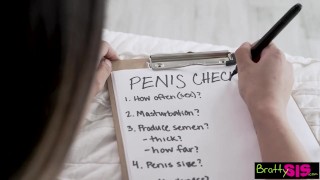 PENIS CHEC
1. How often (sex)?
2. Masturbation?
3. Produce semen?
- thick?
- how far?
4. Penis size?
BrattySIS